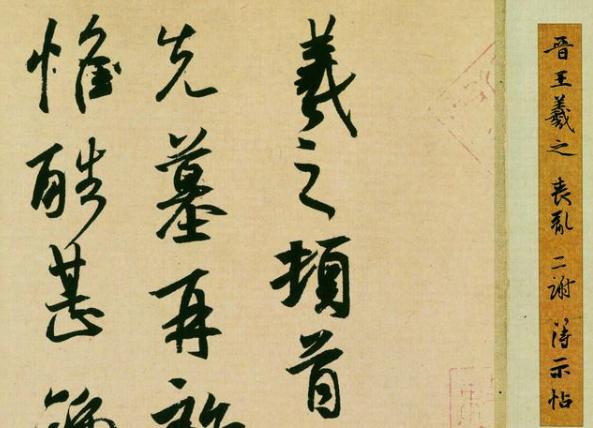 晋王羲之 喪亂 二謝 得示帖
羲之頓首
先墓再
惟酷甚